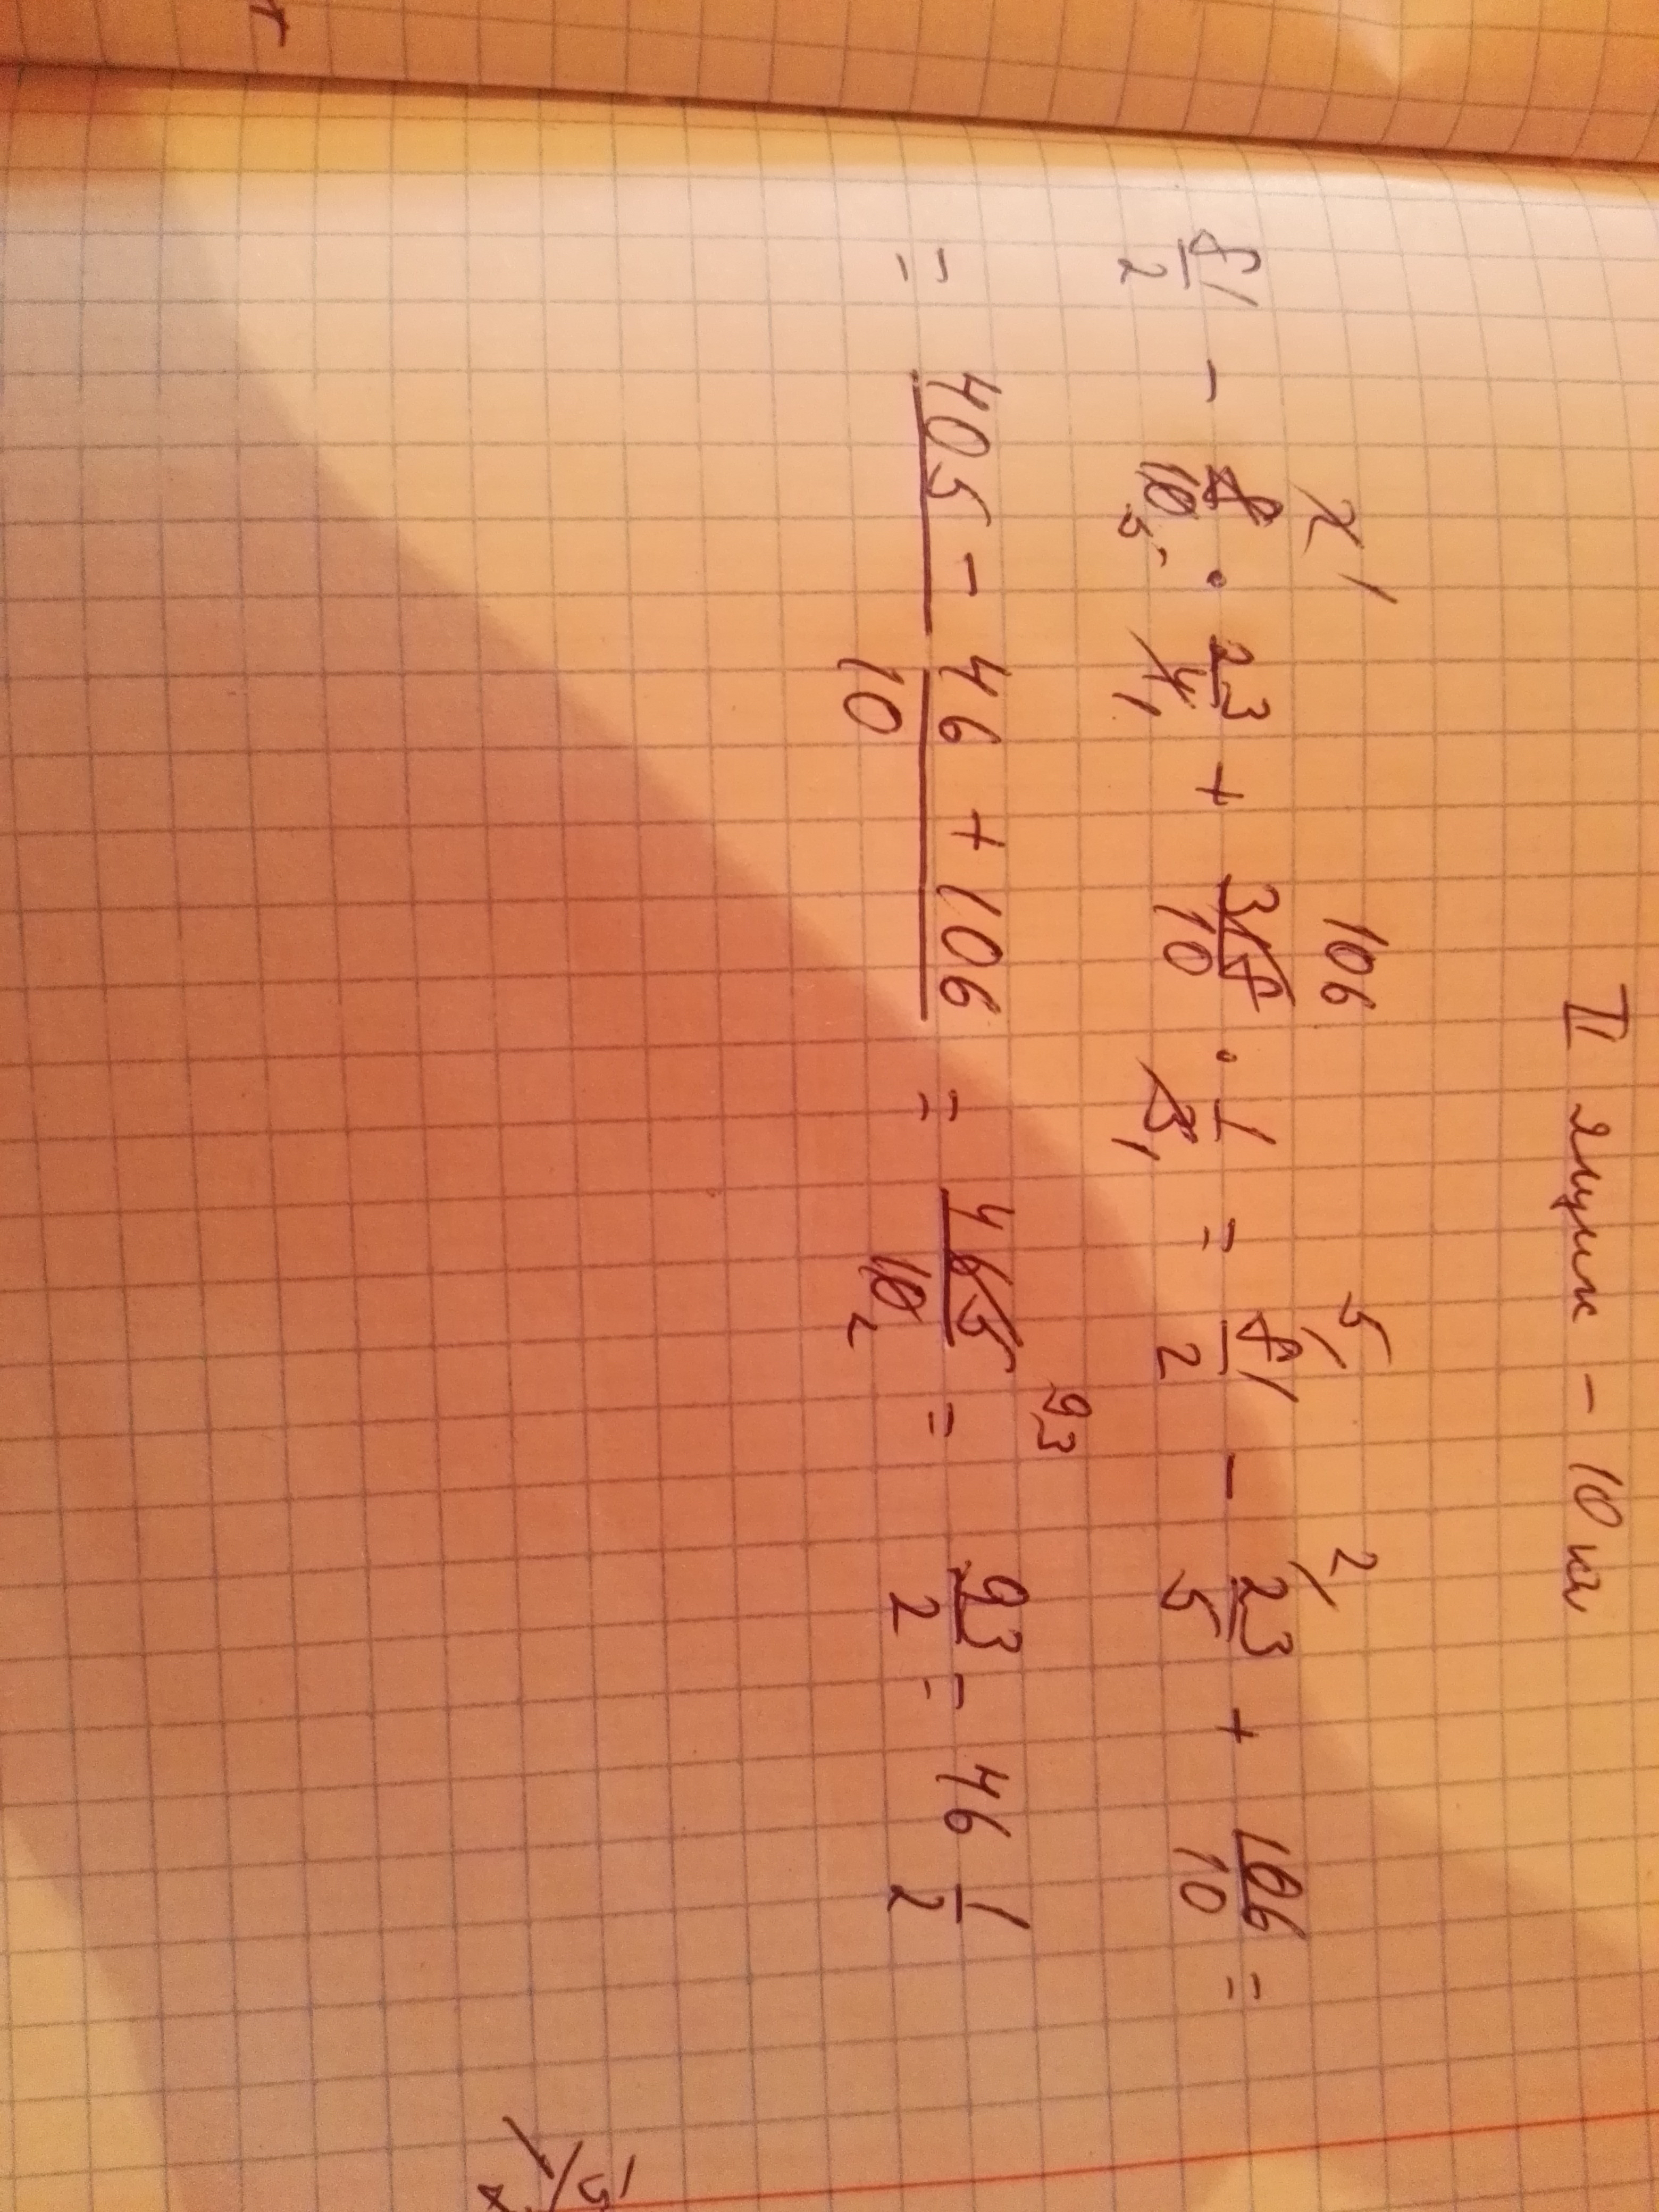 II ящик - 10 кг
81/2 - 8/10 · 23/4 + 318/10 · 1/3 = 81/2 - 23/5 + 106/10 =
= (405 - 46 + 106)/10 = 465/10 = 93/2 = 46 1/2